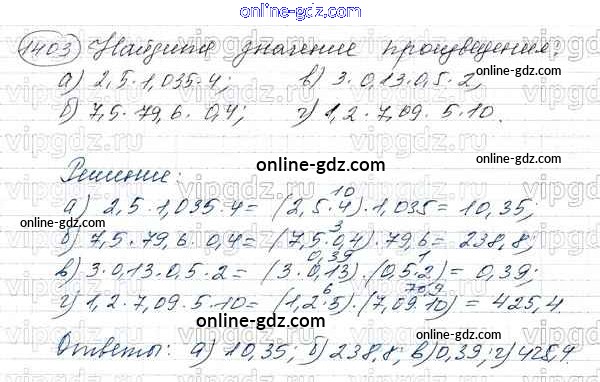 online-gdz.com
1403 Найдите значение произведения:
а) 2,5·1,035·4; в) 3·0,13·0,5·2;
б) 7,5·79,6·0,4; г) 1,2·7,09·5·10.
online-gdz.com
Решение:
online-gdz.com
10
а) 2,5·1,035·4= (2,5·4)·1,035= 10,35;
online-gdz.com
3
б) 7,5·79,6·0,4= (7,5·0,4)·79,6= 238,8;
online-gdz.com
0,39 1
в) 3·0,13·0,5·2= (3·0,13)·(0,5·2)= 0,39;
6 70,9
г) 1,2·7,09·5·10= (1,2·5)·(7,09·10)= 425,4.
online-gdz.com
online-gdz.com
Ответы: а) 10,35; б) 238,8; в) 0,39; г) 425,4.
online-gdz.com